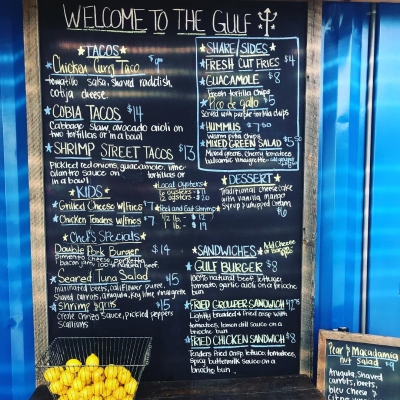 WELCOME TO THE GULF
TACOS
Chicken Curry Taco $9
tomatillo salsa, shaved raddish,
cotija cheese.
COBIA TACOS $14
Cabbage slaw, avocado aioli on
two tortillas or in a bowl
SHRIMP STREET TACOS $13
Pickled red onions, guacamole, lime-
cilantro sauce on tortillas or
in a bowl
KIDS
Grilled Cheese w/Fries $7
Chicken Tenders w/Fries $7
Local Oysters
Peel and Eat Shrimp
1/2 lb. - $12
1 lb. - $19
Chef's Specials
Double Pork Burger $14
Pimento Cheese,
bacon jam, 100% natural beef.
Seared Tuna Salad 15
marinated beets, cauliflower puree,
Shaved carrots, arugula, key lime vinaigrette
Shrimp & Grits 15
Creole Chorizo Sauce, pickled peppers
scallions
SHARE / SIDES
FRESH CUT FRIES $4
GUACAMOLE $8
fresh tortilla chips
Pico de gallo $5
Served with purple tortilla chips
HUMMUS $7.50
Warm pita chips
MIXED GREEN SALAD $5.50
Mixed greens, cherry tomatoes
balsamic vinaigrette
DESSERT
Traditional cheesecake
with vanilla mango
Syrup & whipped cream
SANDWICHES
Add Cheese
GULF BURGER $8
100% natural beef, lettuce,
tomato, garlic aioli on a brioche
bun
FRIED GROUPER SANDWICH
Lightly breaded & fried crisp with
tomatoes, lemon dill sauce on a brioche
bun
FRIED CHICKEN SANDWICH $8
Tenders fried crisp, lettuce, tomatoes,
spicy buttermilk sauce on a
brioche bun
Pear & Macadamia
nut salad $9
Arugula, Shaved
carrots, beets,
bleu cheese &
citrus